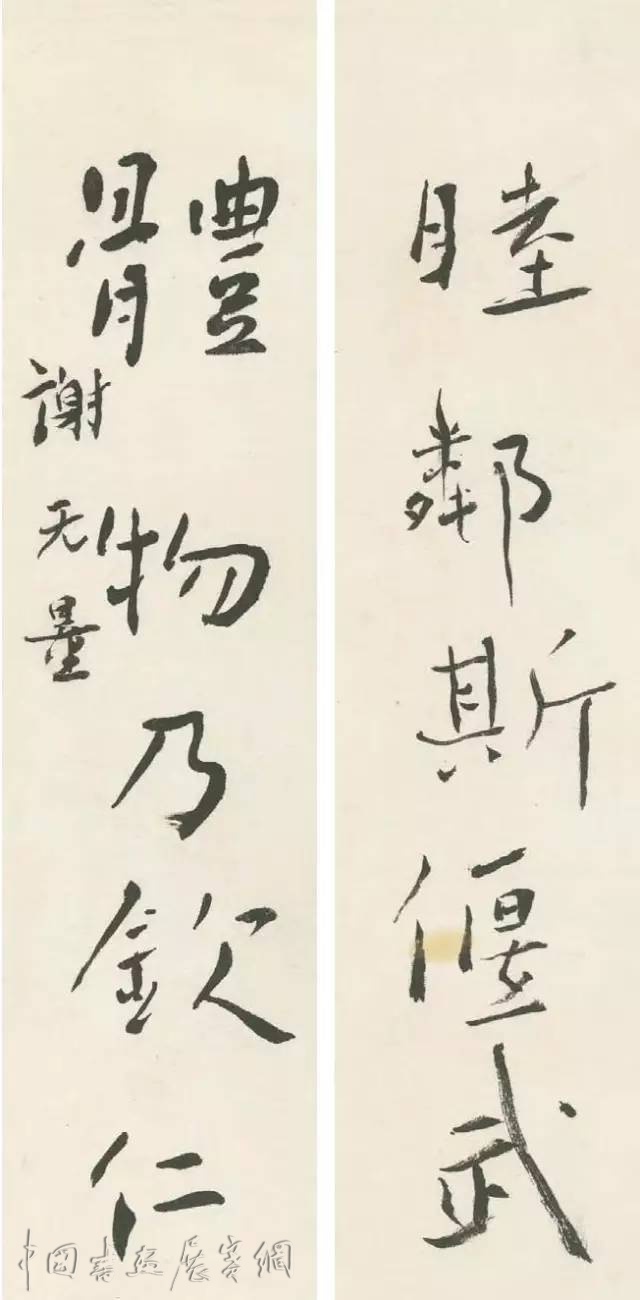 睦鄰斯偃武
體物乃欽仁
謝无量
中国书画展赛網